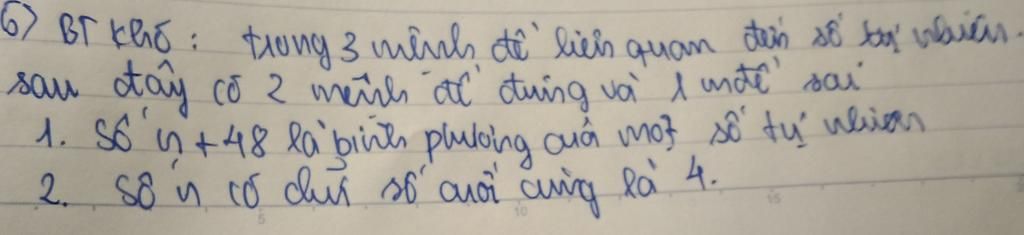 6) BT khó: trong 3 mệnh đề liên quan đến số tự nhiên.
sau đây có 2 mệnh đề đúng và 1 mđề sai
1. Số n + 48 là bình phương của một số tự nhiên
2. Số n có chữ số cuối cùng là 4.